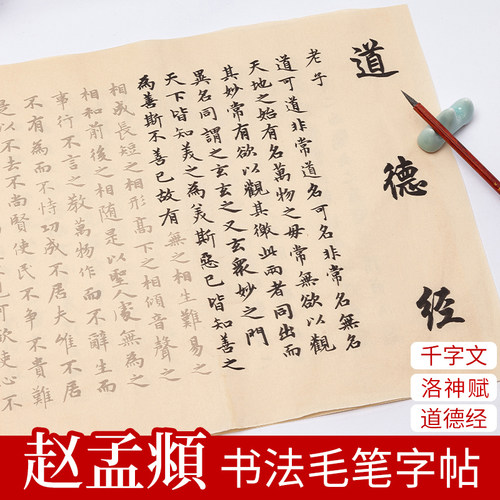 道德经
老子
道可道非常道名可名非常名無名
天地之始有名萬物之母常無欲以觀
其妙常有欲以觀其徼此兩者同出而
異名同謂之玄玄之又玄眾妙之門
天下皆知美之為美斯惡已皆知善之
為善斯不善已故有無之相生難易之
相成長短之相形髙下之相傾音聲之
相和前後之相隨是以聖人處無為之
事行不言之教萬物作而不辭生而
不有為而不恃功成不居夫惟不居
是以不去不尚賢使民不爭不貴難
可欲使心不
千字文
洛神赋
道德经
赵孟頫 书法毛笔字帖